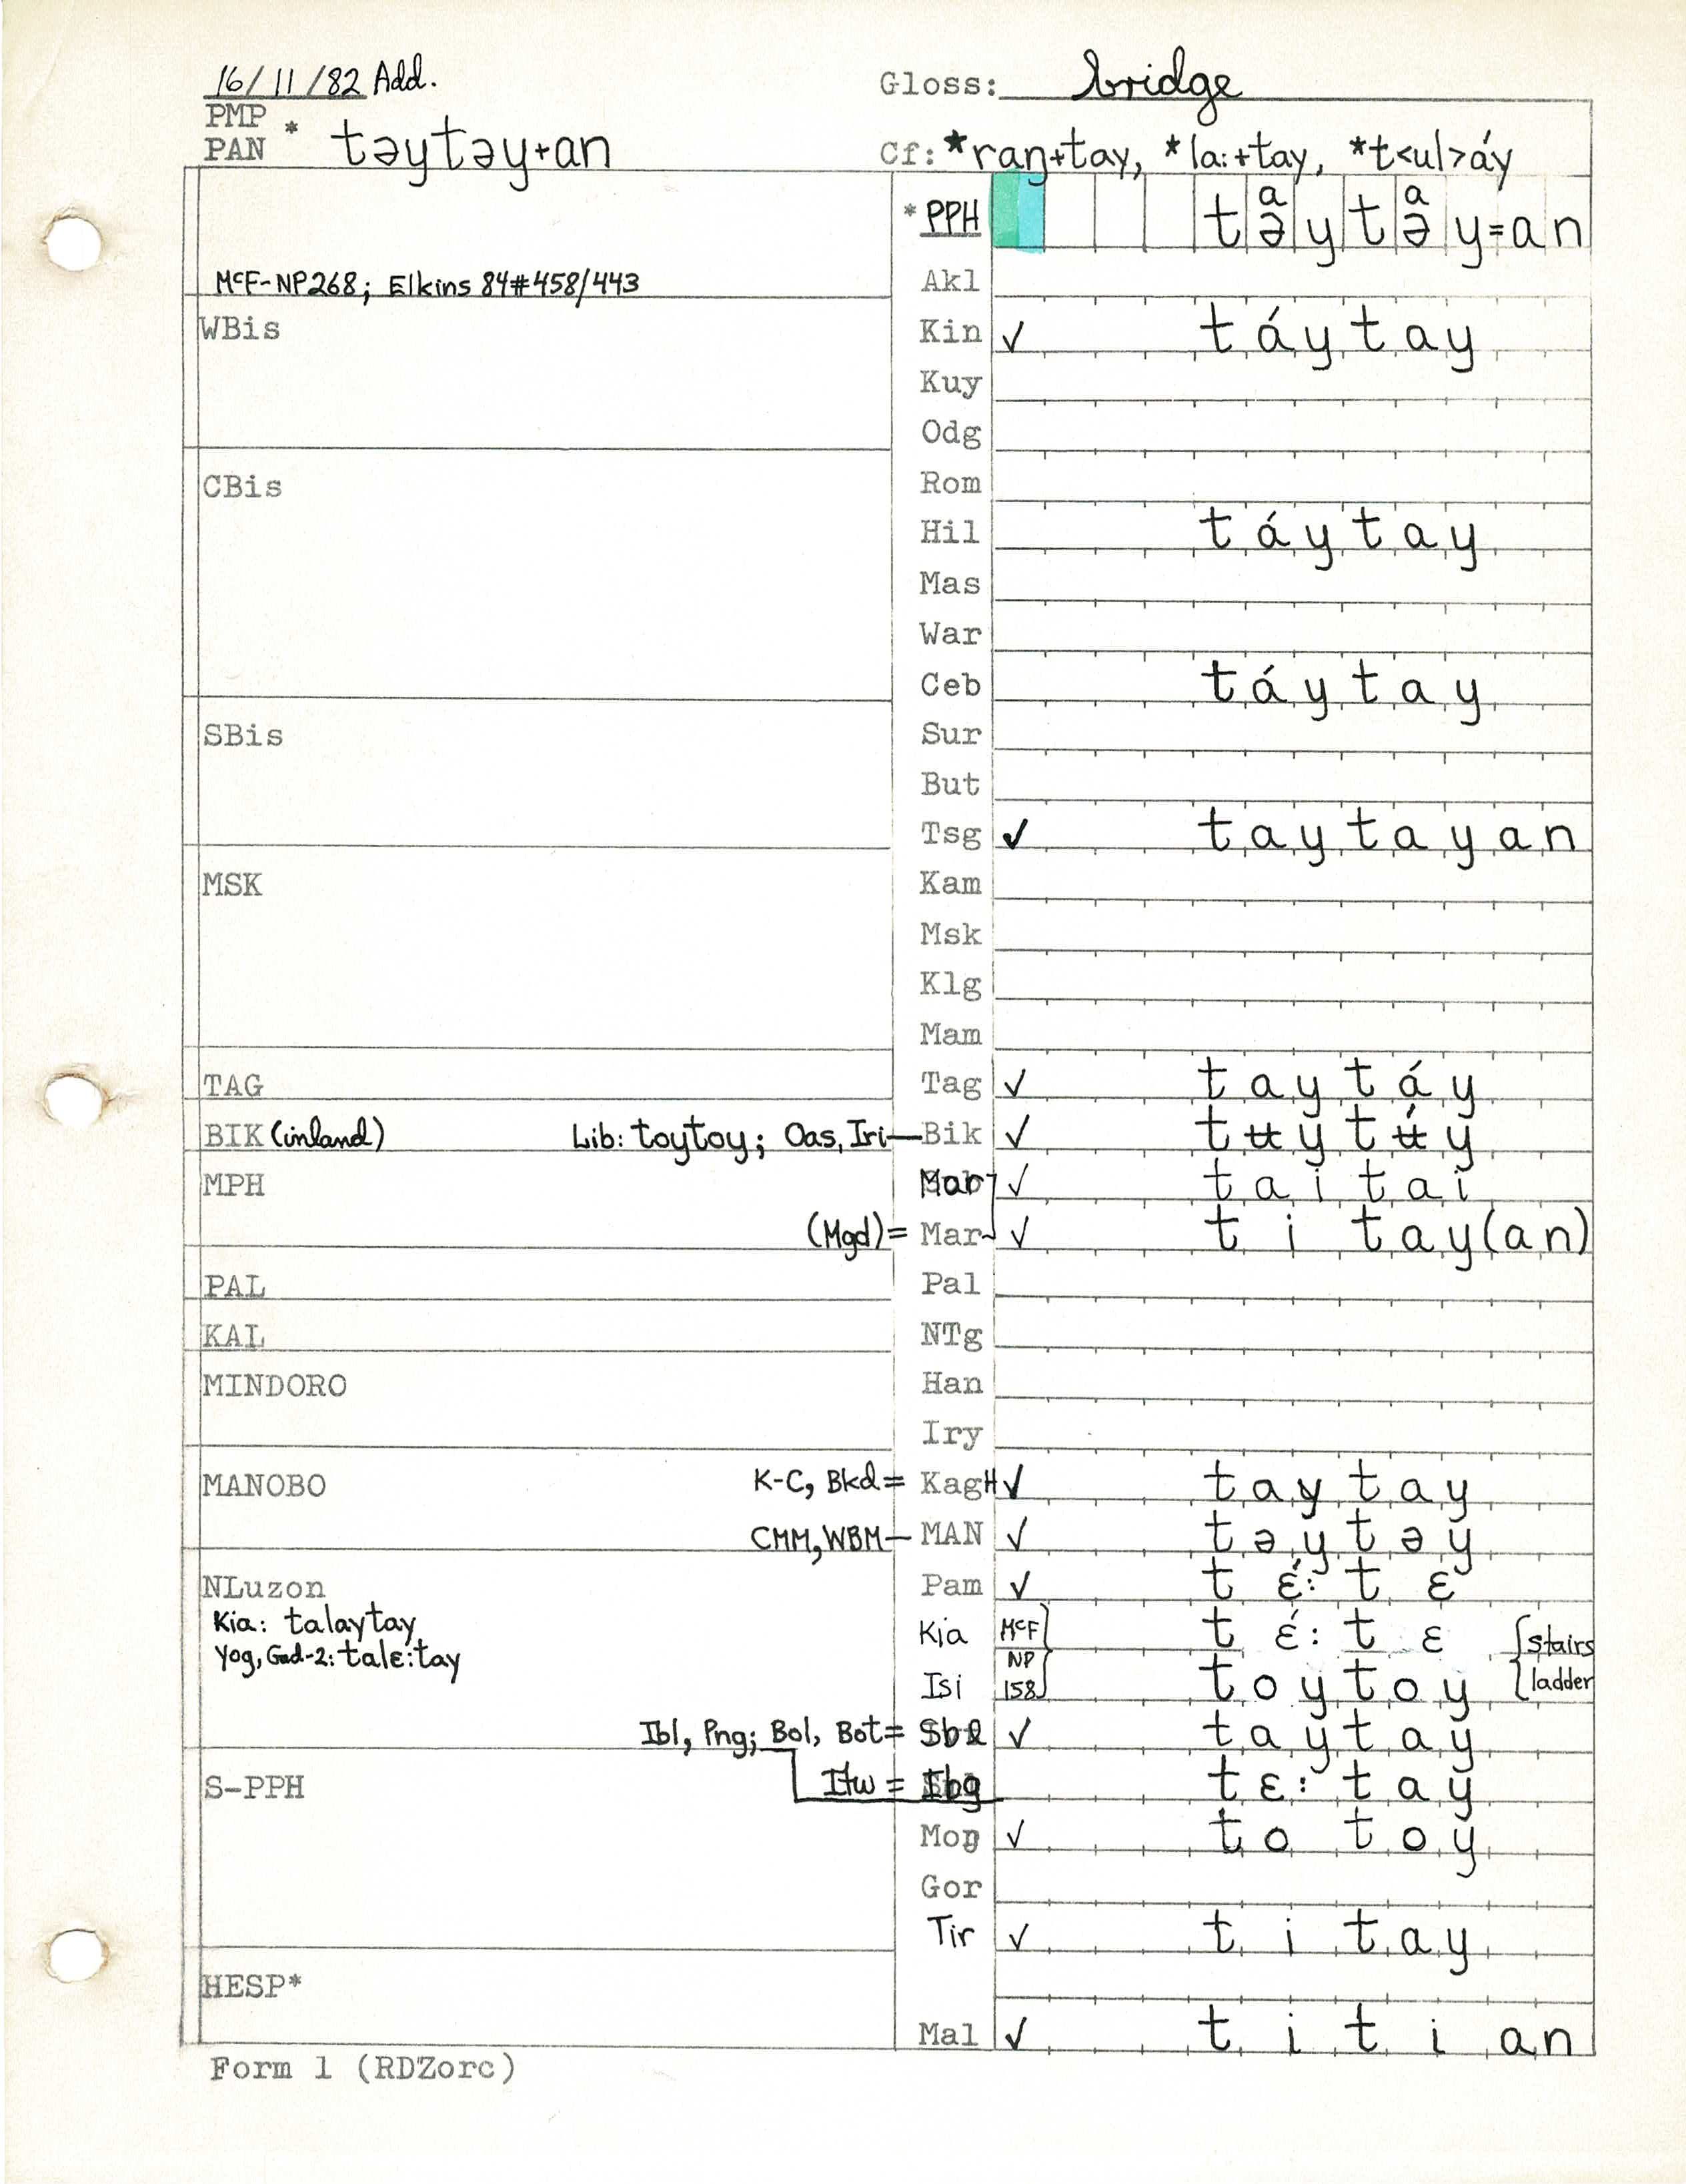 16/11/82 Add.
Gloss: bridge
PMP
PAN * təytəy+an
Cf: *raŋ+tay, *la:+tay, *t<ul>áy
*PPH təytəy=an
a a
McF-NP268; Elkins 84#458/443
Akl
WBis
Kin ✓ táytay
Kuy
Odg
CBis
Rom
Hil táytay
Mas
War
Ceb táytay
SBis
Sur
But
Tsg ✓ taytayan
MSK
Kam
Msk
Klg
Mam
TAG
Tag ✓ taytáy
BIK (inland) Lib: toytoy; Oas, Iri—Bik ✓ tʉytʉ́y
MPH
Mar ✓ taitai
(Mgd)= Mar ✓ titay(an)
PAL
Pal
KAL
NTg
MINDORO
Han
Iry
MANOBO
K-C, Bkd= KagH ✓ taytay
CMM, WBM— MAN ✓ təytəy
NLuzon
Pam ✓ tɛ́:tɛ
Kia: talaytay
Kia McF tɛ́:tɛ {stairs
Yog, Gad-2: talɛ:tay
NP
Isi 158 toytoy ladder
Ibl, Png; Bol, Bot= Sbl ✓ taytay
S-PPH
Itw = Ibg tɛ:tay
Moŋ ✓ totoy
Gor
Tir ✓ titay
HESP*
Mal ✓ titian
Form 1 (RDZorc)